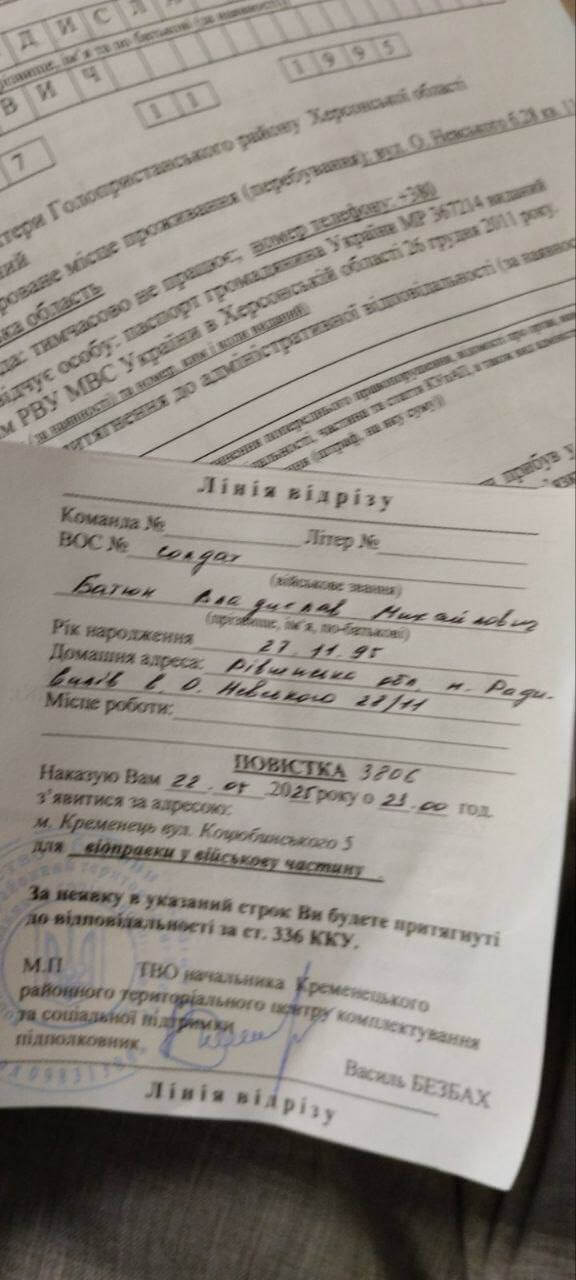 ДИСЛА
ВИЧ
11
1995
7
Голопристанського району Херсонської області
місце проживання (перебування): вул. О. Невського б.28 кв. 11
номер телефону: +380
ка область
тимчасово не працює;
особу: паспорт громадянина України МР 367214 виданий
РВУ МВС України в Херсонській області 26 грудня 2011 року.
до адміністративної відповідальності (за наявності
прибув у
Лінія відрізу
Команда № Літер №
ВОС № солдат
(військове звання)
Батюн Владислав Михайлович
(прізвище, ім’я, по-батькові)
Рік народження 27.11.95
Домашня адреса: Рівненська обл. м. Ради-
вилів в. О. Невського 28/11
Місце роботи:
ПОВИСТКА 3806
Наказую Вам 22.05 2025 року о 23.00 год.
з’явитися за адресою:
м. Кременець вул. Коцюбинського 5
для відправки у військову частину .
За неявку в указаний строк Ви будете притягнуті
до відповідальності за ст. 336 ККУ.
М.П ТВО начальника Кременецького
районного територіального центру комплектування
та соціальної підтримки
підполковник Василь БЕЗБАХ
Лінія відрізу